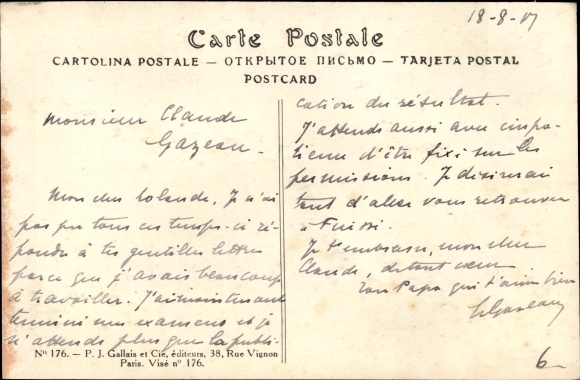 18-8-17
Carte Postale
CARTOLINA POSTALE — ОТКРЫТОЕ ПИСЬМО — TARJETA POSTAL
POSTCARD
Monsieur Claude
Gazeau.
Mon cher Colande, Je n'ai
pas pu tous ces temps-ci ré-
pondre à tes gentilles lettres
parce que j'avais beaucoup
à travailler. J'ai maintenant
terminé mes examens et je
n'attends plus que la publi-
cation du résultat.
J'attends aussi avec impa-
tience d'être fixé sur les
permissions. Je désirerais
tant d'aller vous retrouver
à
Je t'embrasse, mon cher
Claude, de tout cœur
Ton Papa qui t'aime bien
Gazeau
Nº 176. — P. J. Gallais et Cie, éditeurs, 38, Rue Vignon
Paris. Visé nº 176.
6-